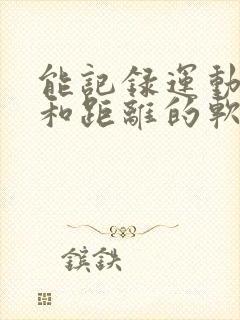 能記録運動
和距離的軟
鑌鉄